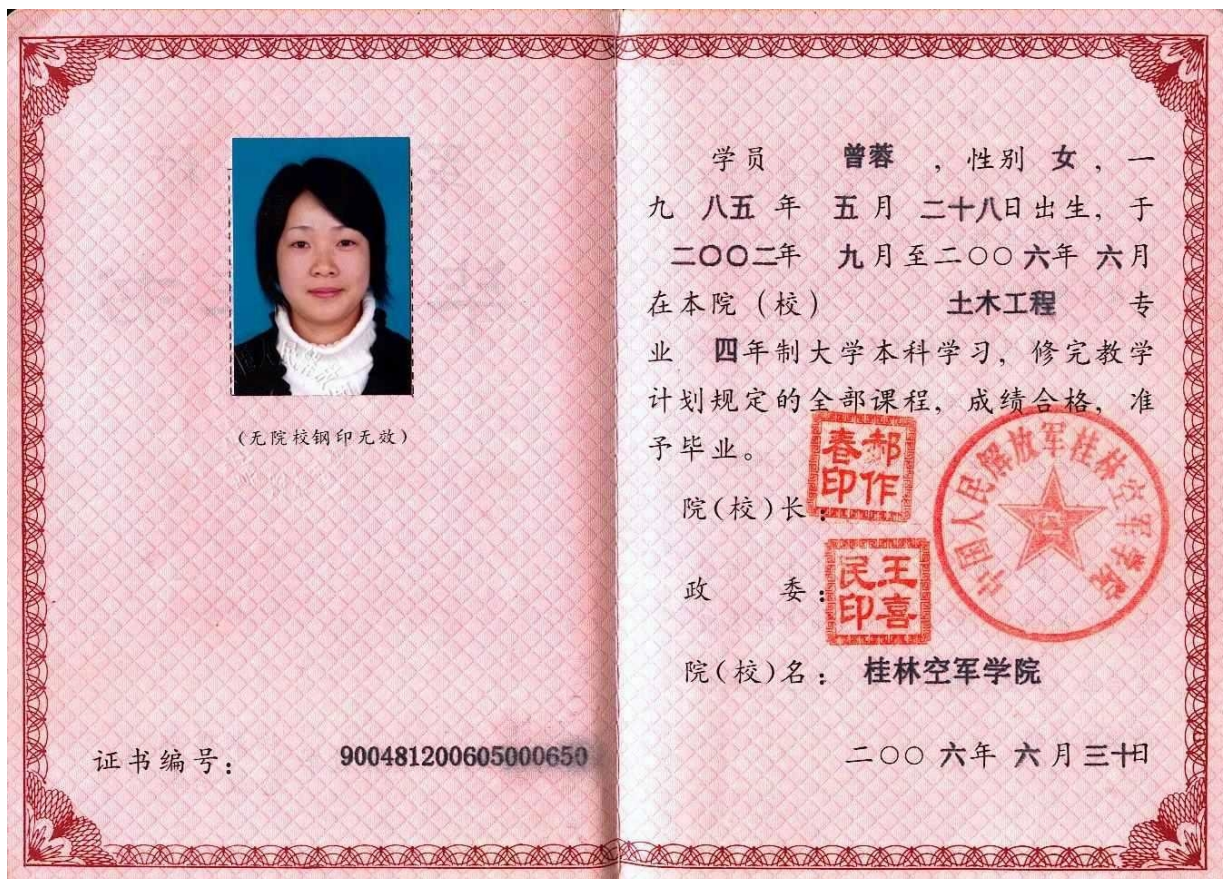 (无院校钢印无效)
证书编号： 900481200605000650
学员 曾蓉 ，性别 女，一
九 八五 年 五月 二十八日出生，于
二〇〇二年 九月至二〇〇六年 六月
在本院（校） 土木工程 专
业 四年制大学本科学习，修完教学
计划规定的全部课程，成绩合格，准
予毕业。
院(校)长：
郝作春印
政 委：
王喜民印
中国人民解放军桂林空军学院
院(校)名： 桂林空军学院
二〇〇六年 六月三十日